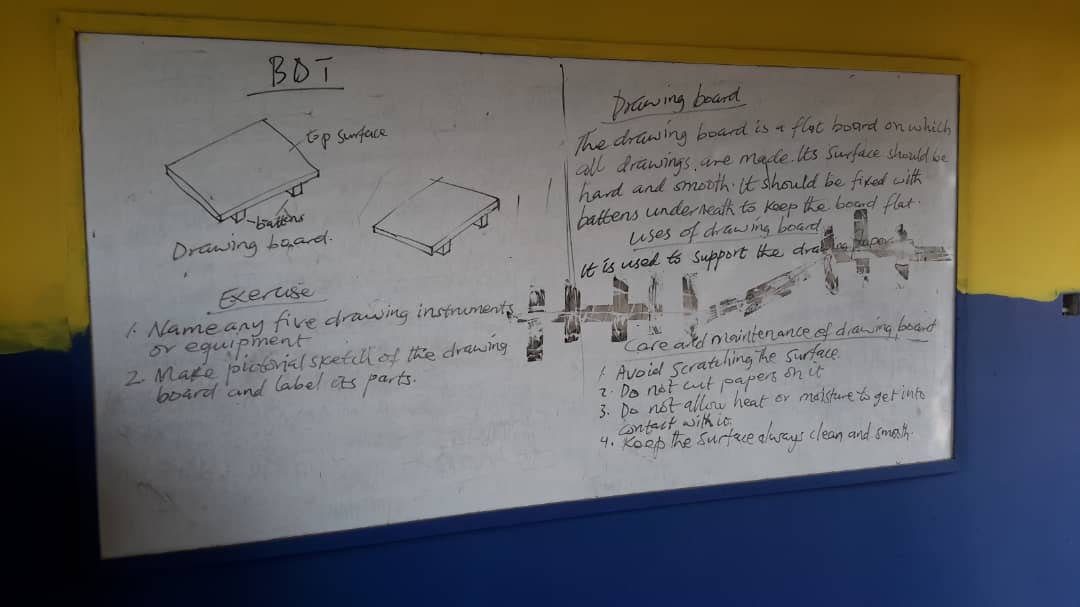 BDT
top surface
battens
Drawing board.
Exercise
1. Name any five drawing instruments
or equipment
2. Make pictorial sketch of the drawing
board and label its parts.
Drawing board
The drawing board is a flat board on which
all drawings are made. Its surface should be
hard and smooth. It should be fixed with
battens underneath to keep the board flat.
Uses of drawing board
It is used to support the drawing paper.
Care and maintenance of drawing board
1. Avoid scratching the surface.
2. Do not cut papers on it
3. Do not allow heat or moisture to get into
contact with it.
4. Keep the surface always clean and smooth.